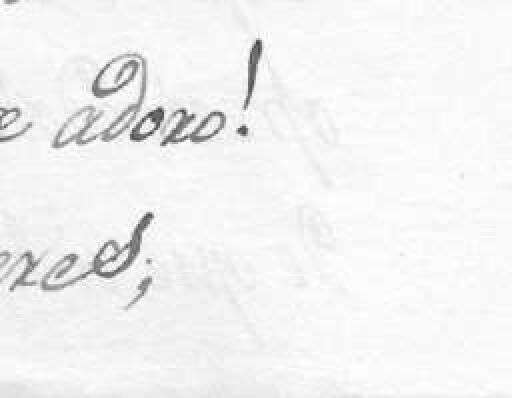 e adoro!
eres;